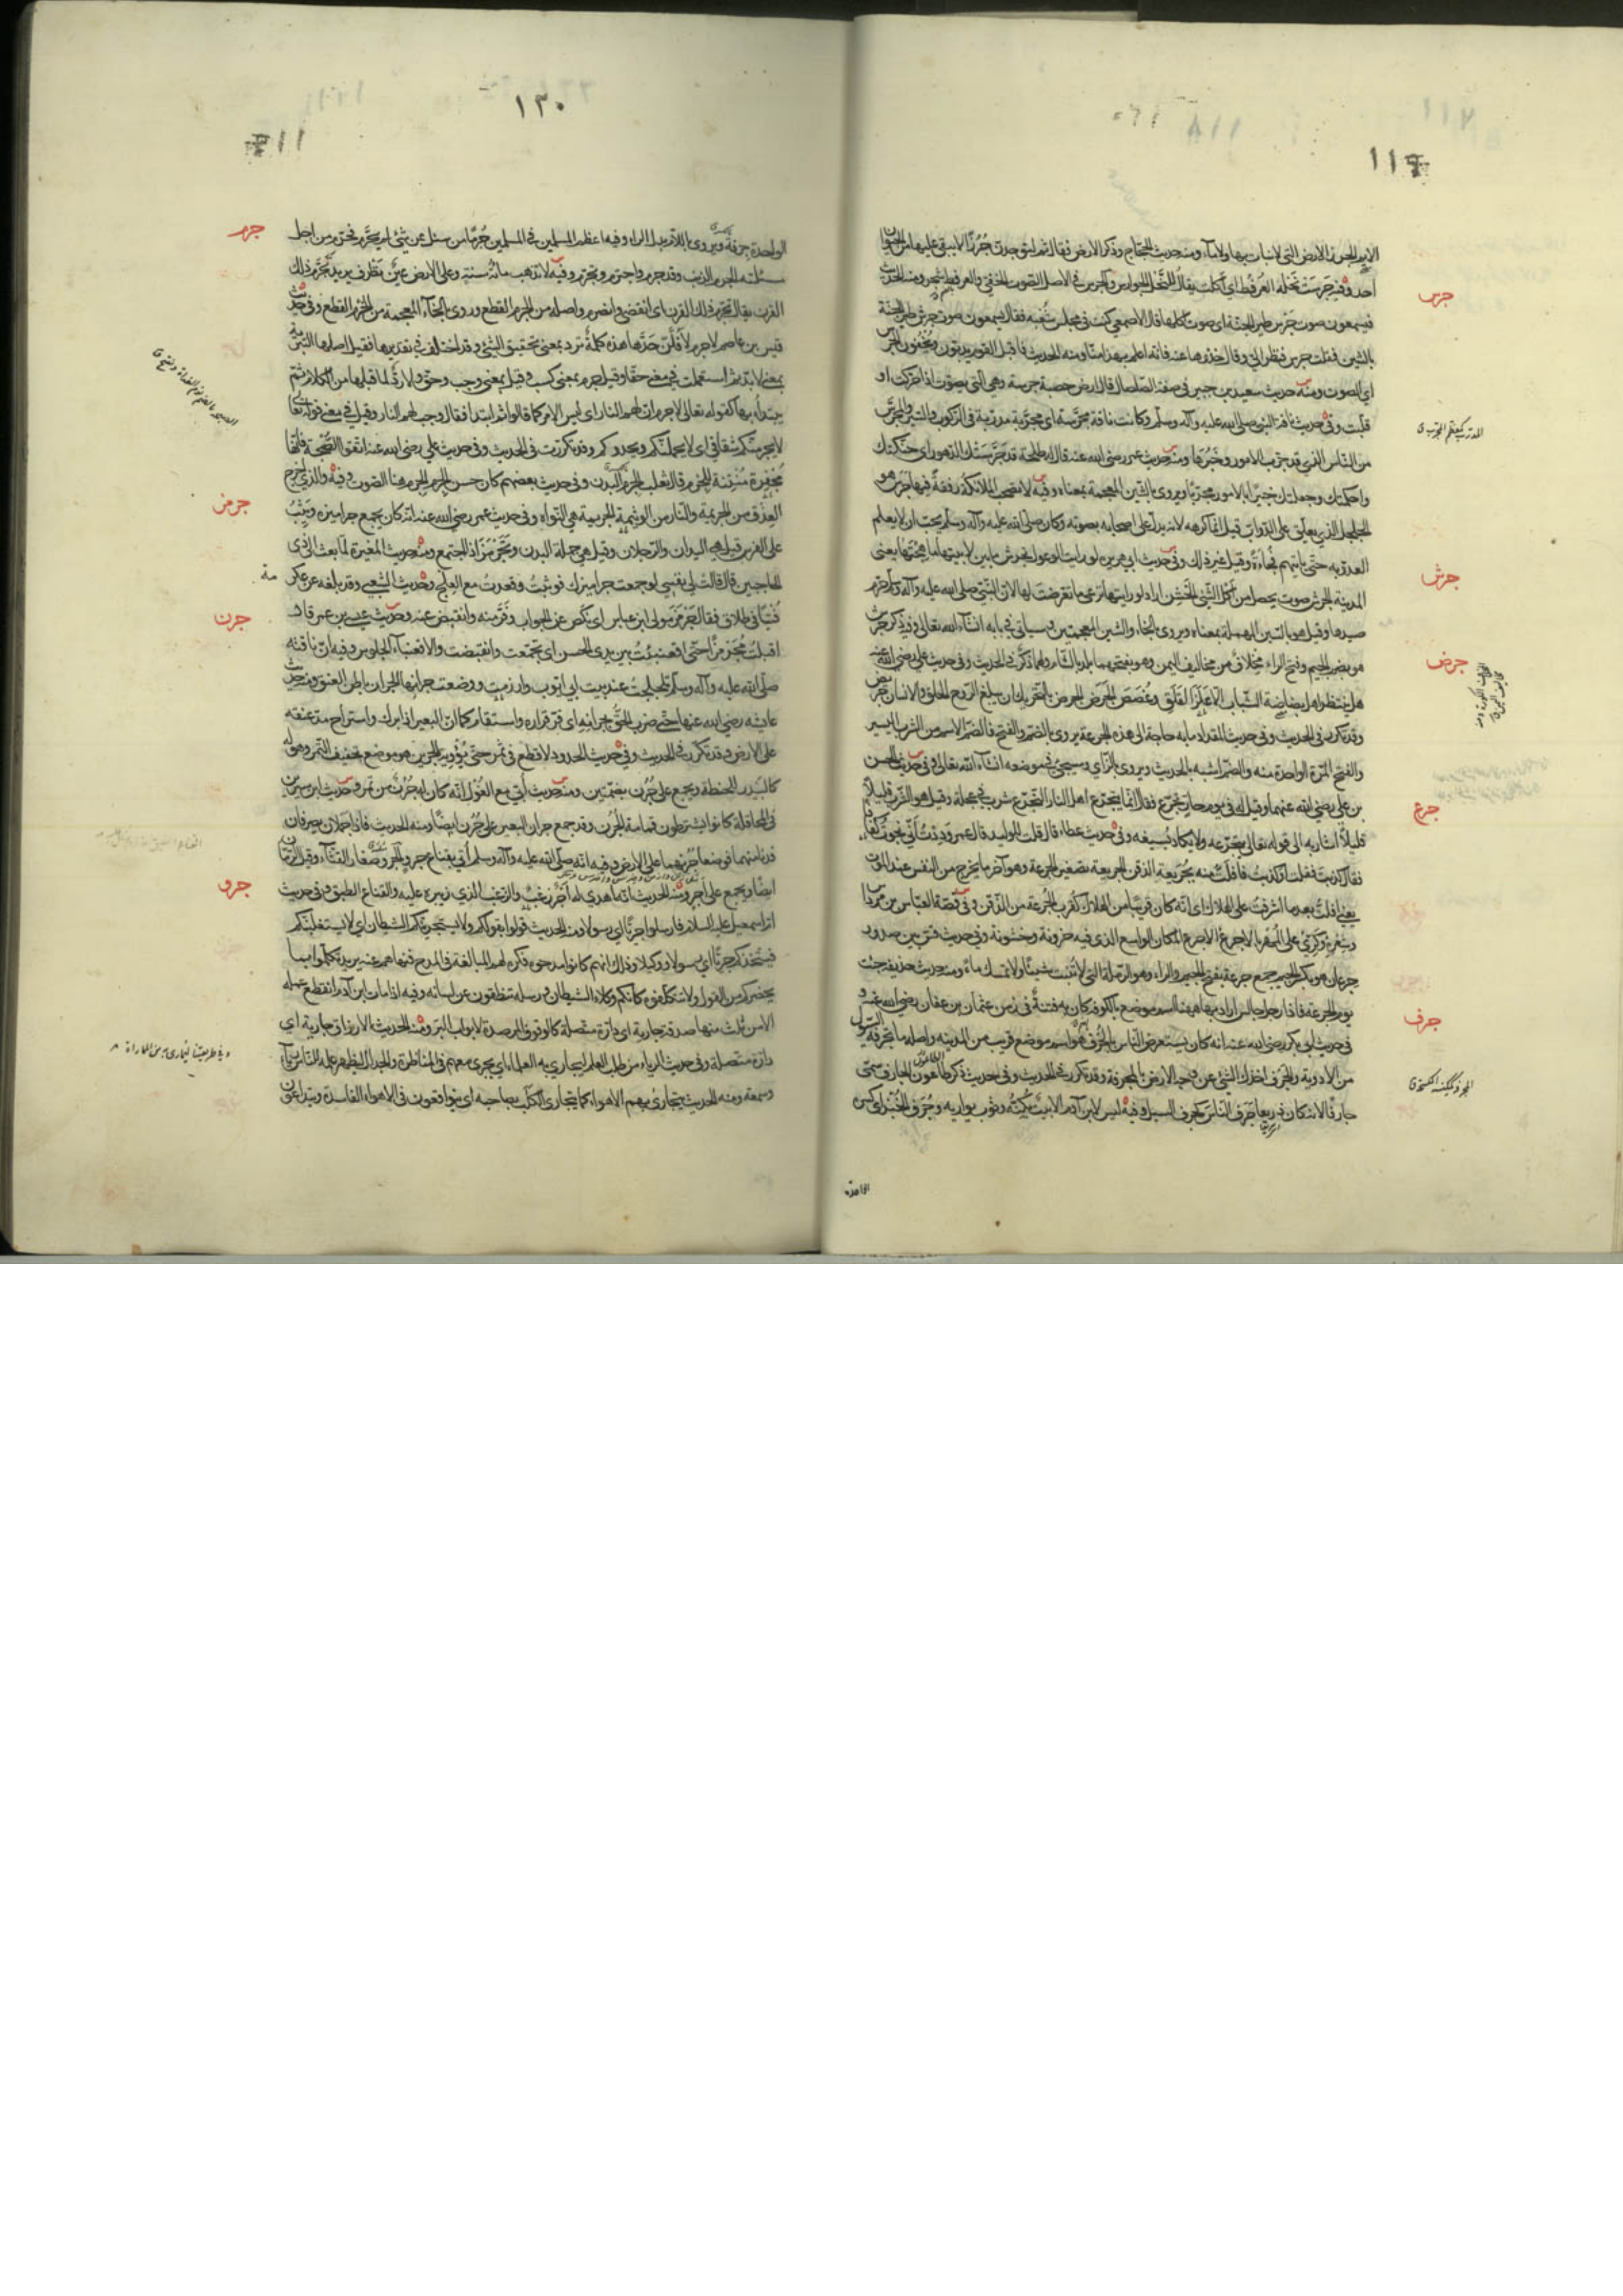 ١١٩
الارض الجرز الارض التي لا نبات بها ولا ماء ومنه حديث الحجاج وذكر الارض فقال ثم لتوجدن جرزا لا يبقى عليها من الحيوان
احد وفيه جرست نحله العرفط اي اكلت يقال للنحل الجوارس والجرس في الاصل الصوت الخفي والعرفط شجر ومنه الحديث
فيسمعون صوت جرس طير الجنة اي صوت اكلها قال الاصمعي كنت في مجلس شعبة فقال يسمعون صوت جرش طير الجنة
بالشين فقلت جرس فنظر الي وقال خذوها عنه فانه اعلم بهذا منا ومنه الحديث فاقبل القوم يدبون ويخفون الجرس
اي الصوت ومنه حديث سعيد بن جبير في صفة الصلصال قال ارض خصبة جرسة وهي التي يصوت اذا حركت او
قلبت وفي حديث ناقة النبي صلى الله عليه وآله وسلم وكانت ناقة مجرسة اي مجربة مدربة في الركوب والسير والمجرس
من الناس الذي قد جرب الامور وخبرها ومنه حديث عمر رضي الله عنه قال له طلحة قد جرستك الدهور اي حنكتك
واحكمتك وجعلتك خبيرا بالامور مجربا ويروى بالشين المعجمة بمعناه وفيه لا تصحب الملائكة رفقة فيها جرس هو
الجلجل الذي يعلق على الدواب قيل انما كرهه لانه يدل على اصحابه بصوته وكان صلى الله عليه وآله وسلم يحب ان لا يعلم
العدو به حتى ياتيهم فجاءة وقيل غير ذلك وفي حديث ابي هريرة لو رايت الوعول تجرش ما بين لابتيها ما هجتها يعني
المدينة الجرش صوت يحصل من اكل الشيء الخشن اراد لو رايتها ترعى ما تعرضت لها لان النبي صلى الله عليه وآله وسلم حرم
صيدها وقيل هو بالسين المهملة بمعناه ويروى بالخاء والشين المعجمتين وسياتي في بابه انشاء الله تعالى وفيه ذكر جرش
هو بضم الجيم وفتح الراء مخلاف من مخاليف اليمن وهو بفتحهما بلد بالشام ولهما ذكر في الحديث وفي حديث علي رضي الله عنه
هل ينتظر اهل بضاضة الشباب الا علز القلق وغصص الجرض الجرض بالتحريك ان يبلغ الروح الحلق والانسان جريض
وقد تكرر في الحديث وفي حديث المقداد ما به حاجة الى هذه الجرعة يروى بالضم والفتح فالضم الاسم من الشرب اليسير
والفتح المرة الواحدة منه والضم اشبه بالحديث ويروى بالزاي وسيجيء في موضعه انشاء الله تعالى وفي حديث الحسن
بن علي رضي الله عنهما وقيل له في يوم حار تجرع فقال انما يتجرع اهل النار التجرع شرب في عجلة وقيل هو الشرب قليلا
قليلا اشار به الى قوله تعالى يتجرعه ولا يكاد يسيغه وفي حديث عطاء قال قلت للوليد قال عمر وددت اني نجوت كفافا
فقال كذبت فقلت او كذبت فافلت منه بجريعة الذقن الجريعة تصغير الجرعة وهو آخر ما يخرج من النفس عند الموت
يعني افلت بعد ما اشرفت على الهلاك اي انه كان قريبا من الهلاك كقرب الجرعة من الذقن وفي قصة العباس بن مرداس
وشعره وكري على المهر بالاجرع الاجرع المكان الواسع الذي فيه حزونة وخشونة وفي حديث قس بين صدور
جرعان هو بكسر الجيم جمع جرعة بفتح الجيم والراء وهو الرملة التي لا تنبت شيئا ولا تمسك ماء ومنه حديث حذيفة جئت
يوم الجرعة فاذا رجل جالس اراد بها ههنا اسم موضع بالكوفة كان به فتنة في زمن عثمان بن عفان رضي الله عنه و
في حديث ابي بكر رضي الله عنه انه كان يستعرض الناس بالجرف هو اسم موضع قريب من المدينة واصله ما تجرفه السيول
من الاودية والجرف اخذك الشيء عن وجه الارض بالمجرفة وقد تكرر في الحديث وفي حديث ذكر طاعون الجارف سمي
جارفا لانه كان ذريعا جرف الناس كجرف السيل وفيه ليس لابن آدم الا بيت يكنه وثوب يواريه وجرف الخبز اي كسره
جرس
جرش
جرض
جرع
جرف
الواحدة
١٣٠
الواحدة جرفة ويروى باللام بدل الراء وفيه اعظم المسلمين في المسلمين جرما من سئل عن شيء لم يحرم فحرم من اجل
مسئلته الجرم الذنب وقد جرم واجترم وتجرم وفيه لا تذهب مائة سنة وعلى الارض عين تطرف يريد تجرم ذلك
القرن يقال تجرم ذلك القرن اي انقضى وانصرم واصله من الجرم القطع ويروى بالخاء المعجمة من الخرم القطع وفي حديث
قيس بن عاصم لا جرم لافلن حدها هذه كلمة ترد بمعنى تحقيق الشيء وقد اختلف في تقديرها فقيل اصلها التبرئة
بمعنى لا بد ثم استعملت في معنى حقا وقيل جرم بمعنى كسب وقيل بمعنى وجب وحق ولا رد لما قبلها من الكلام ثم
يبتدأ بها كقوله تعالى لا جرم ان لهم النار اي ليس الامر كما قالوا ثم ابتدا فقال وجب لهم النار وقيل في معنى قوله تعالى
لا يجرمنكم شقاقي اي لا يحملنكم ويحدوكم وقد تكررت في الحديث وفي حديث علي رضي الله عنه اتقوا الصبحة فانها
مجفرة منتنة للجرم قال ثعلب الجرم البدن وفي حديث بعضهم كان حسن الجرم الجرم هنا الصوت وفيه والذي اخرج
العذق من الجريمة والنار من الوثيمة الجريمة هي النواة وفي حديث عمر رضي الله عنه انه كان يجمع جراميزه ويثب
على الفرس قيل هي اليدان والرجلان وقيل هي جملة البدن وتجرمز اذا اجتمع ومنه حديث المغيرة لما بعث الى ذي
الحاجبين قال قالت لي نفسي لو جمعت جراميزك فوثبت وقعدت مع العلج وحديث الشعبي وقد بلغه عن عكرمة
فتيا في طلاق فقال جرمز مولى ابن عباس اي نكص عن الجواب وفر منه وانقبض عنه وحديث عيسى بن عمر قال
اقبلت مجرمزا حتى اقعنبيت بين يدي الحسن اي تجمعت وانقبضت والاقعنباء الجلوس وفيه ان ناقته
صلى الله عليه وآله وسلم تلحلحت عند بيت ابي ايوب وارزمت ووضعت جرانها الجران باطن العنق ومنه حديث
عايشة رضي الله عنها حتى ضرب الحق بجرانه اي قر قراره واستقام كما ان البعير اذا برك واستراح مد عنقه
على الارض وقد تكرر في الحديث وفي حديث الحدود لا قطع في ثمر حتى يؤويه الجرين هو موضع تجفيف التمر وهو له
كالبيدر للحنطة ويجمع على جرن بضمتين ومنه حديث ابي مع الغول انه كان له جرن من تمر وحديث ابن سيرين
في المحاقلة كانوا يشترطون قمامة الجرن وقد جمع جران البعير على جرن ايضا ومنه الحديث فاذا جملان يصرفان
فدنا منهما فوضعا جرنهما على الارض وفيه انه صلى الله عليه وآله وسلم اتي بقناع جرو الجرو صغار القثاء وقيل الرمان
ايضا ويجمع على اجر ومنه الحديث انه اهدي له اجر زغب والزغب الذي زئبره عليه والقناع الطبق وفي حديث
ام اسمعيل عليه السلام فارسلوا جريا اي رسولا ومنه الحديث قولوا بقولكم ولا يستجرينكم الشيطان اي لا يستغلبنكم
فيتخذكم جريا اي رسولا ووكيلا وذلك انهم كانوا مدحوه فكره لهم المبالغة في المدح فنهاهم عنه يريد تكلموا بما
يحضركم من القول ولا تتكلفوه كانكم وكلاء الشيطان ورسله تنطقون عن لسانه وفيه اذا مات ابن آدم انقطع عمله
الا من ثلث منها صدقة جارية اي دارة متصلة كالوقوف المرصدة لابواب البر ومنه الحديث الارزاق جارية اي
دارة متصلة وفي حديث الرياء من طلب العلم ليجاري به العلماء اي يجري معهم في المناظرة والجدال ليظهر علمه للناس رياء
وسمعة ومنه الحديث يتجارى بهم الاهواء كما يتجارى الكلب بصاحبه اي يتواقعون في الاهواء الفاسدة ويتداعون
جرم
جرمز
جرن
جرو